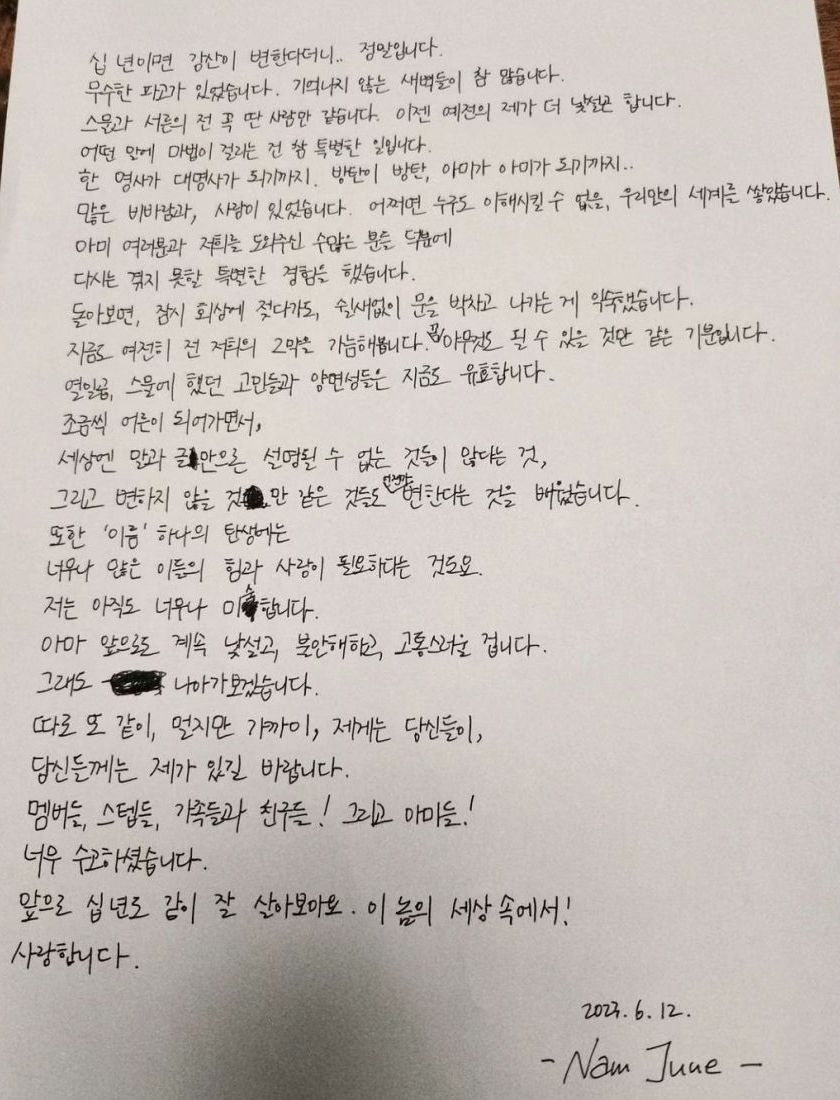 십 년이면 강산이 변한다더니.. 정말입니다.
무수한 파고가 있었습니다. 기억나지 않는 새벽들이 참 많습니다.
스물과 서른의 전 꼭 딴 사람만 같습니다. 이젠 예전의 제가 더 낯설곤 합니다.
어떤 말에 마법이 걸리는 건 참 특별한 일입니다.
한 명사가 대명사가 되기까지. 방탄이 방탄, 아미가 아미가 되기까지..
많은 비바람과, 사랑이 있었습니다. 어쩌면 누구도 이해시킬 수 없을, 우리만의 세계를 쌓았습니다.
아미 여러분과 저희를 도와주신 수많은 분들 덕분에
다시는 겪지 못할 특별한 경험을 했습니다.
돌아보면, 잠시 회상에 젖다가도, 쉴새없이 문을 박차고 나가는 게 익숙했습니다.
지금도 여전히 전 저희의 2막을 가늠해봅니다. 꼭 아무것도 될 수 있을 것만 같은 기분입니다.
열일곱, 스물에 했던 고민들과 양면성들은 지금도 유효합니다.
조금씩 어른이 되어가면서,
세상엔 말과 글만으론 설명될 수 없는 것들이 많다는 것,
그리고 변하지 않을 것만 같은 것들도 언젠가 변한다는 것을 배웠습니다.
또한 '이름' 하나의 탄생에는
너무나 많은 이들의 힘과 사랑이 필요하다는 것도요.
저는 아직도 너무나 미숙합니다.
아마 앞으로도 계속 낯설고, 불안해하고, 고통스러울 겁니다.
그래도 나아가보겠습니다.
따로 또 같이, 멀지만 가까이, 제게는 당신들이,
당신들께는 제가 있길 바랍니다.
멤버들, 스텝들, 가족들과 친구들! 그리고 아미들!
너무 수고하셨습니다.
앞으로 십 년도 같이 잘 살아보아요. 이 놈의 세상 속에서!
사랑합니다.
2023. 6. 12.
- Nam June -